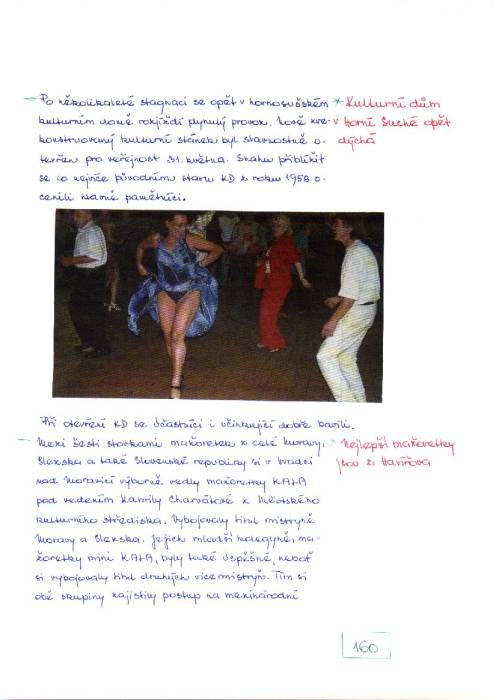 Po několikaleté stagnaci se opět v hornosušském
kulturním domě rozjíždí plynulý provoz. Nově zre-
konstruovaný kulturní stánek byl slavnostně o-
tevřen pro veřejnost 31. května. Snahu přiblížit
se co nejvíce původnímu stavu KD z roku 1958 o-
cenili hlavně pamětníci.
* Kulturní dům
v Horní Suché opět
dýchá
Při otevření KD se účastníci i účinkující dobře bavili.
Mezi šesti stovkami mažoretek z celé Moravy,
Slezska a také Slovenské republiky si v Hradci
nad Moravicí výborně vedly mažoretky KAŤA
pod vedením Kamily Charvátové z Městského
kulturního střediska. Vybojovaly titul mistryně
Moravy a Slezska. Jejich mladší kolegyně, ma-
žoretky mini KAŤA, byly také úspěšné, neboť
si vybojovaly titul druhých vicemistryň. Tím si
obě skupiny zajistily postup na mezinárodní
* Nejlepší mažoretky
jsou z Havířova
160